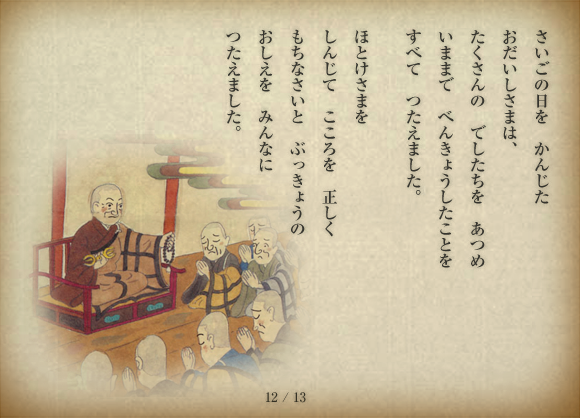 さいごの日を　かんじた
おだいしさまは、
たくさんの　でしたちを　あつめ
いままで　べんきょうしたことを
すべて　つたえました。
ほとけさまを
しんじて　こころを　正しく
もちなさいと　ぶっきょうの
おしえを　みんなに
つたえました。
12 / 13